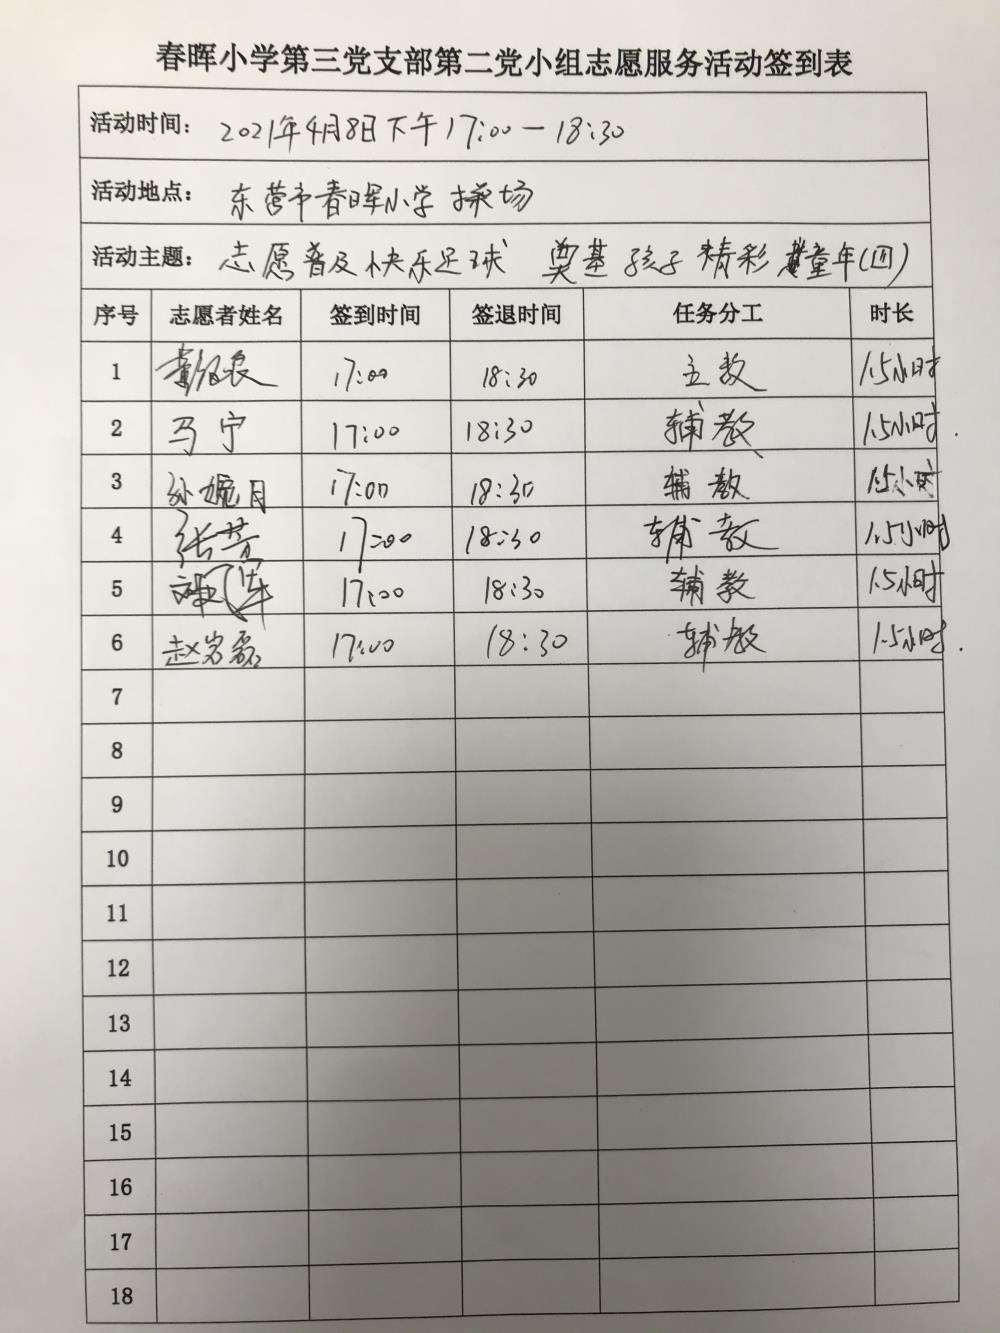 春晖小学第三党支部第二党小组志愿服务活动签到表
活动时间：2021年4月8日下午17:00－18:30
活动地点：东营市春晖小学操场
活动主题：志愿普及快乐足球 奠基孩子精彩童年(四)
序号 志愿者姓名 签到时间 签退时间 任务分工 时长
1 17:00 18:30 主教 1.5小时
2 马宁 17:00 18:30 辅教 1.5小时.
3 孙婉月 17:00 18:30 辅教 1.5小时
4 张芸 17:00 18:30 辅教 1.5小时
5 17:00 18:30 辅教 1.5小时
6 赵岩磊 17:00 18:30 辅教 1.5小时.
7
8
9
10
11
12
13
14
15
16
17
18